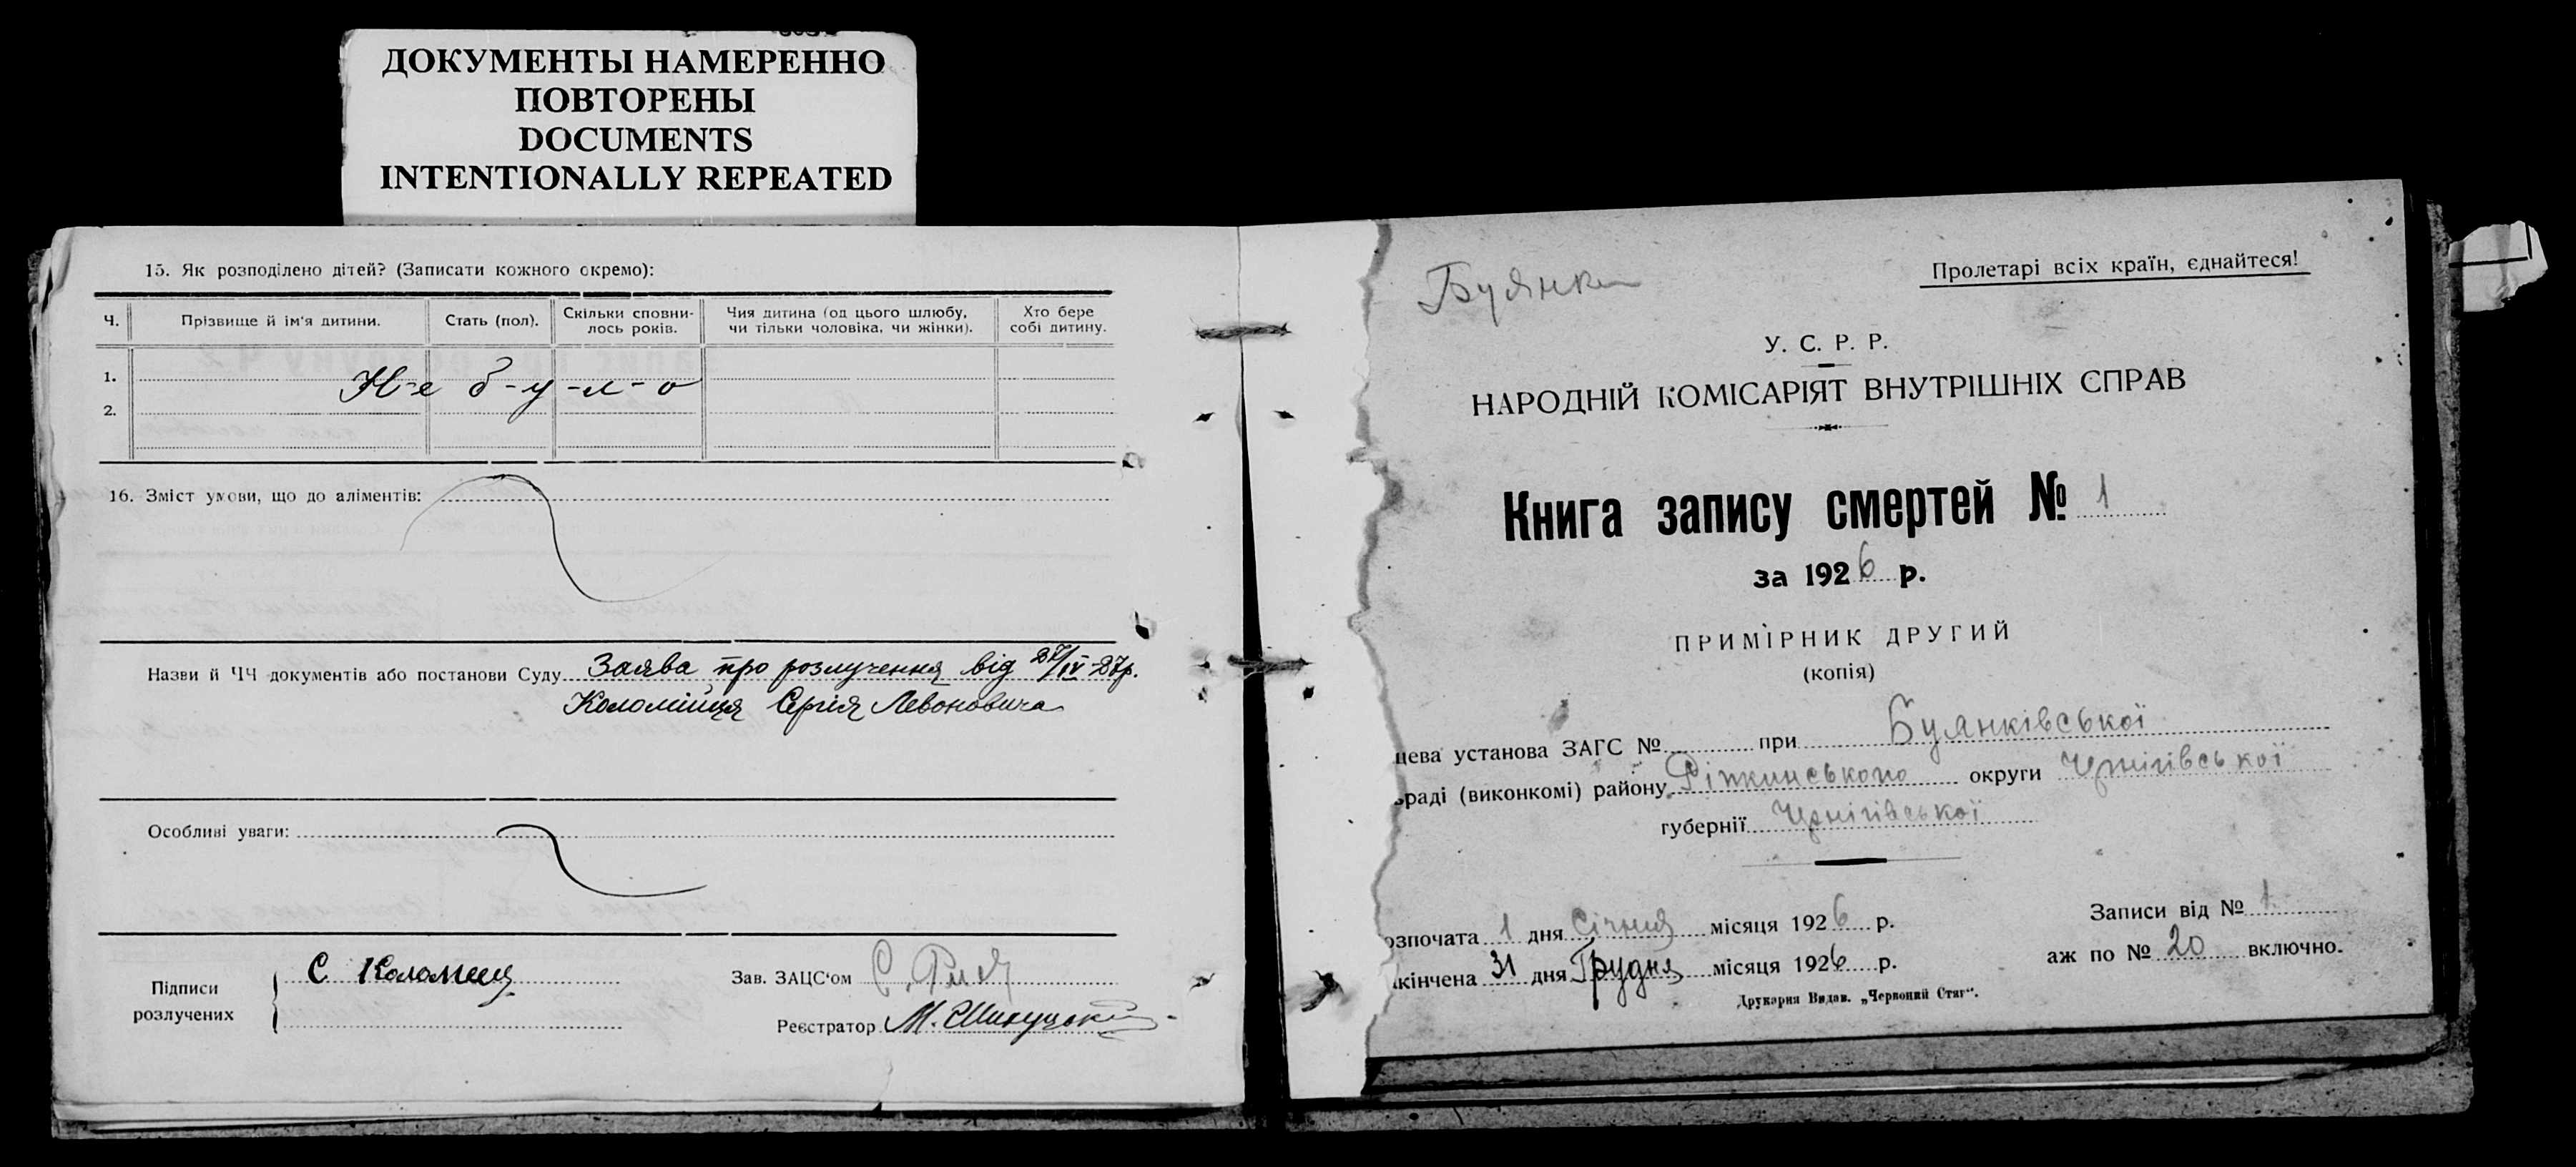 ДОКУМЕНТЫ НАМЕРЕННО
ПОВТОРЕНЫ
DOCUMENTS
INTENTIONALLY REPEATED
15. Як розподілено дітей? (Записати кожного окремо):
Ч. Прізвище й ім'я дитини. Стать (пол). Скільки сповнилось років. Чия дитина (од цього шлюбу, чи тільки чоловіка, чи жінки). Хто бере собі дитину.
1.
Н-е б-у-л-о
2.
16. Зміст умови, що до аліментів:
Назви й ЧЧ документів або постанови Суду Заява про розлучення від 27/IV-27р.
Коломійця Сергія Левоновича
Особливі уваги:
Підписи розлучених
С Коломиец
Зав. ЗАЦС'ом С.
Реєстратор М.
Буянки
Пролетарі всіх країн, єднайтеся!
У. С. Р. Р.
НАРОДНІЙ КОМІСАРІЯТ ВНУТРІШНІХ СПРАВ
Книга запису смертей № 1
за 1926 р.
ПРИМІРНИК ДРУГИЙ
(копія)
цева установа ЗАГС № при Буянківської
раді (виконкомі) району Ріпкинського округи Чернігівської
губернії Чернігівської
озпочата 1 дня Січня місяця 1926 р.
Записи від № 1
кінчена 31 дня Грудня місяця 1926 р.
аж по № 20 включно.
Друкарня Видав. „Червоний Стяг".